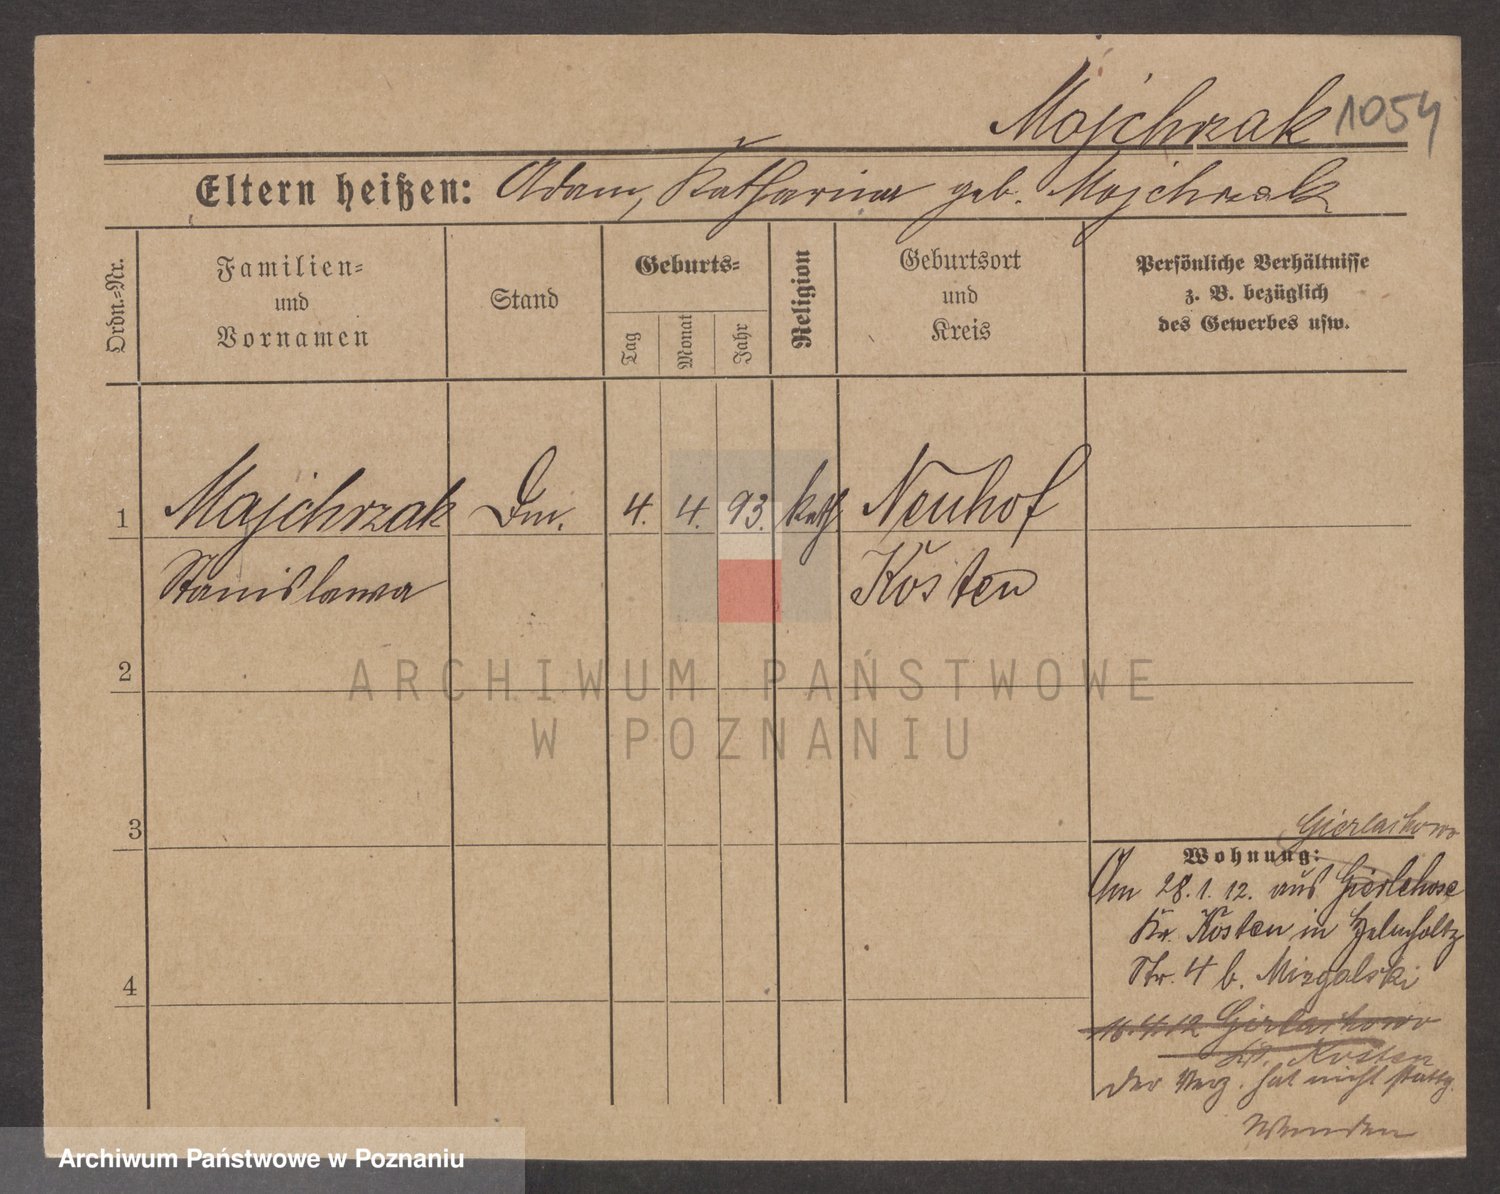 Majchrzak 1054
Eltern heißen: Adam, Katharina geb. Majchrzak
Ordn.-Nr.
Familien-
und
Vornamen
Stand
Geburts-
Tag
Monat
Jahr
Religion
Geburtsort
und
Kreis
Persönliche Verhältnisse
z. B. bezüglich
des Gewerbes usw.
1 Majchrzak Dm. 4. 4. 93. kath Neuhof
Stanislawa Kosten
2
ARCHIWUM PAŃSTWOWE
W POZNANIU
3
Gierlachowo
Wohnung:
Am 28.1.12. aus
Kr. Kosten in Helmholtz
Str. 4 b. Mizgalski
16.4.12 Gierlachowo
Kr. Kosten
der Verz. hat nicht
Wenden
4
Archiwum Państwowe w Poznaniu